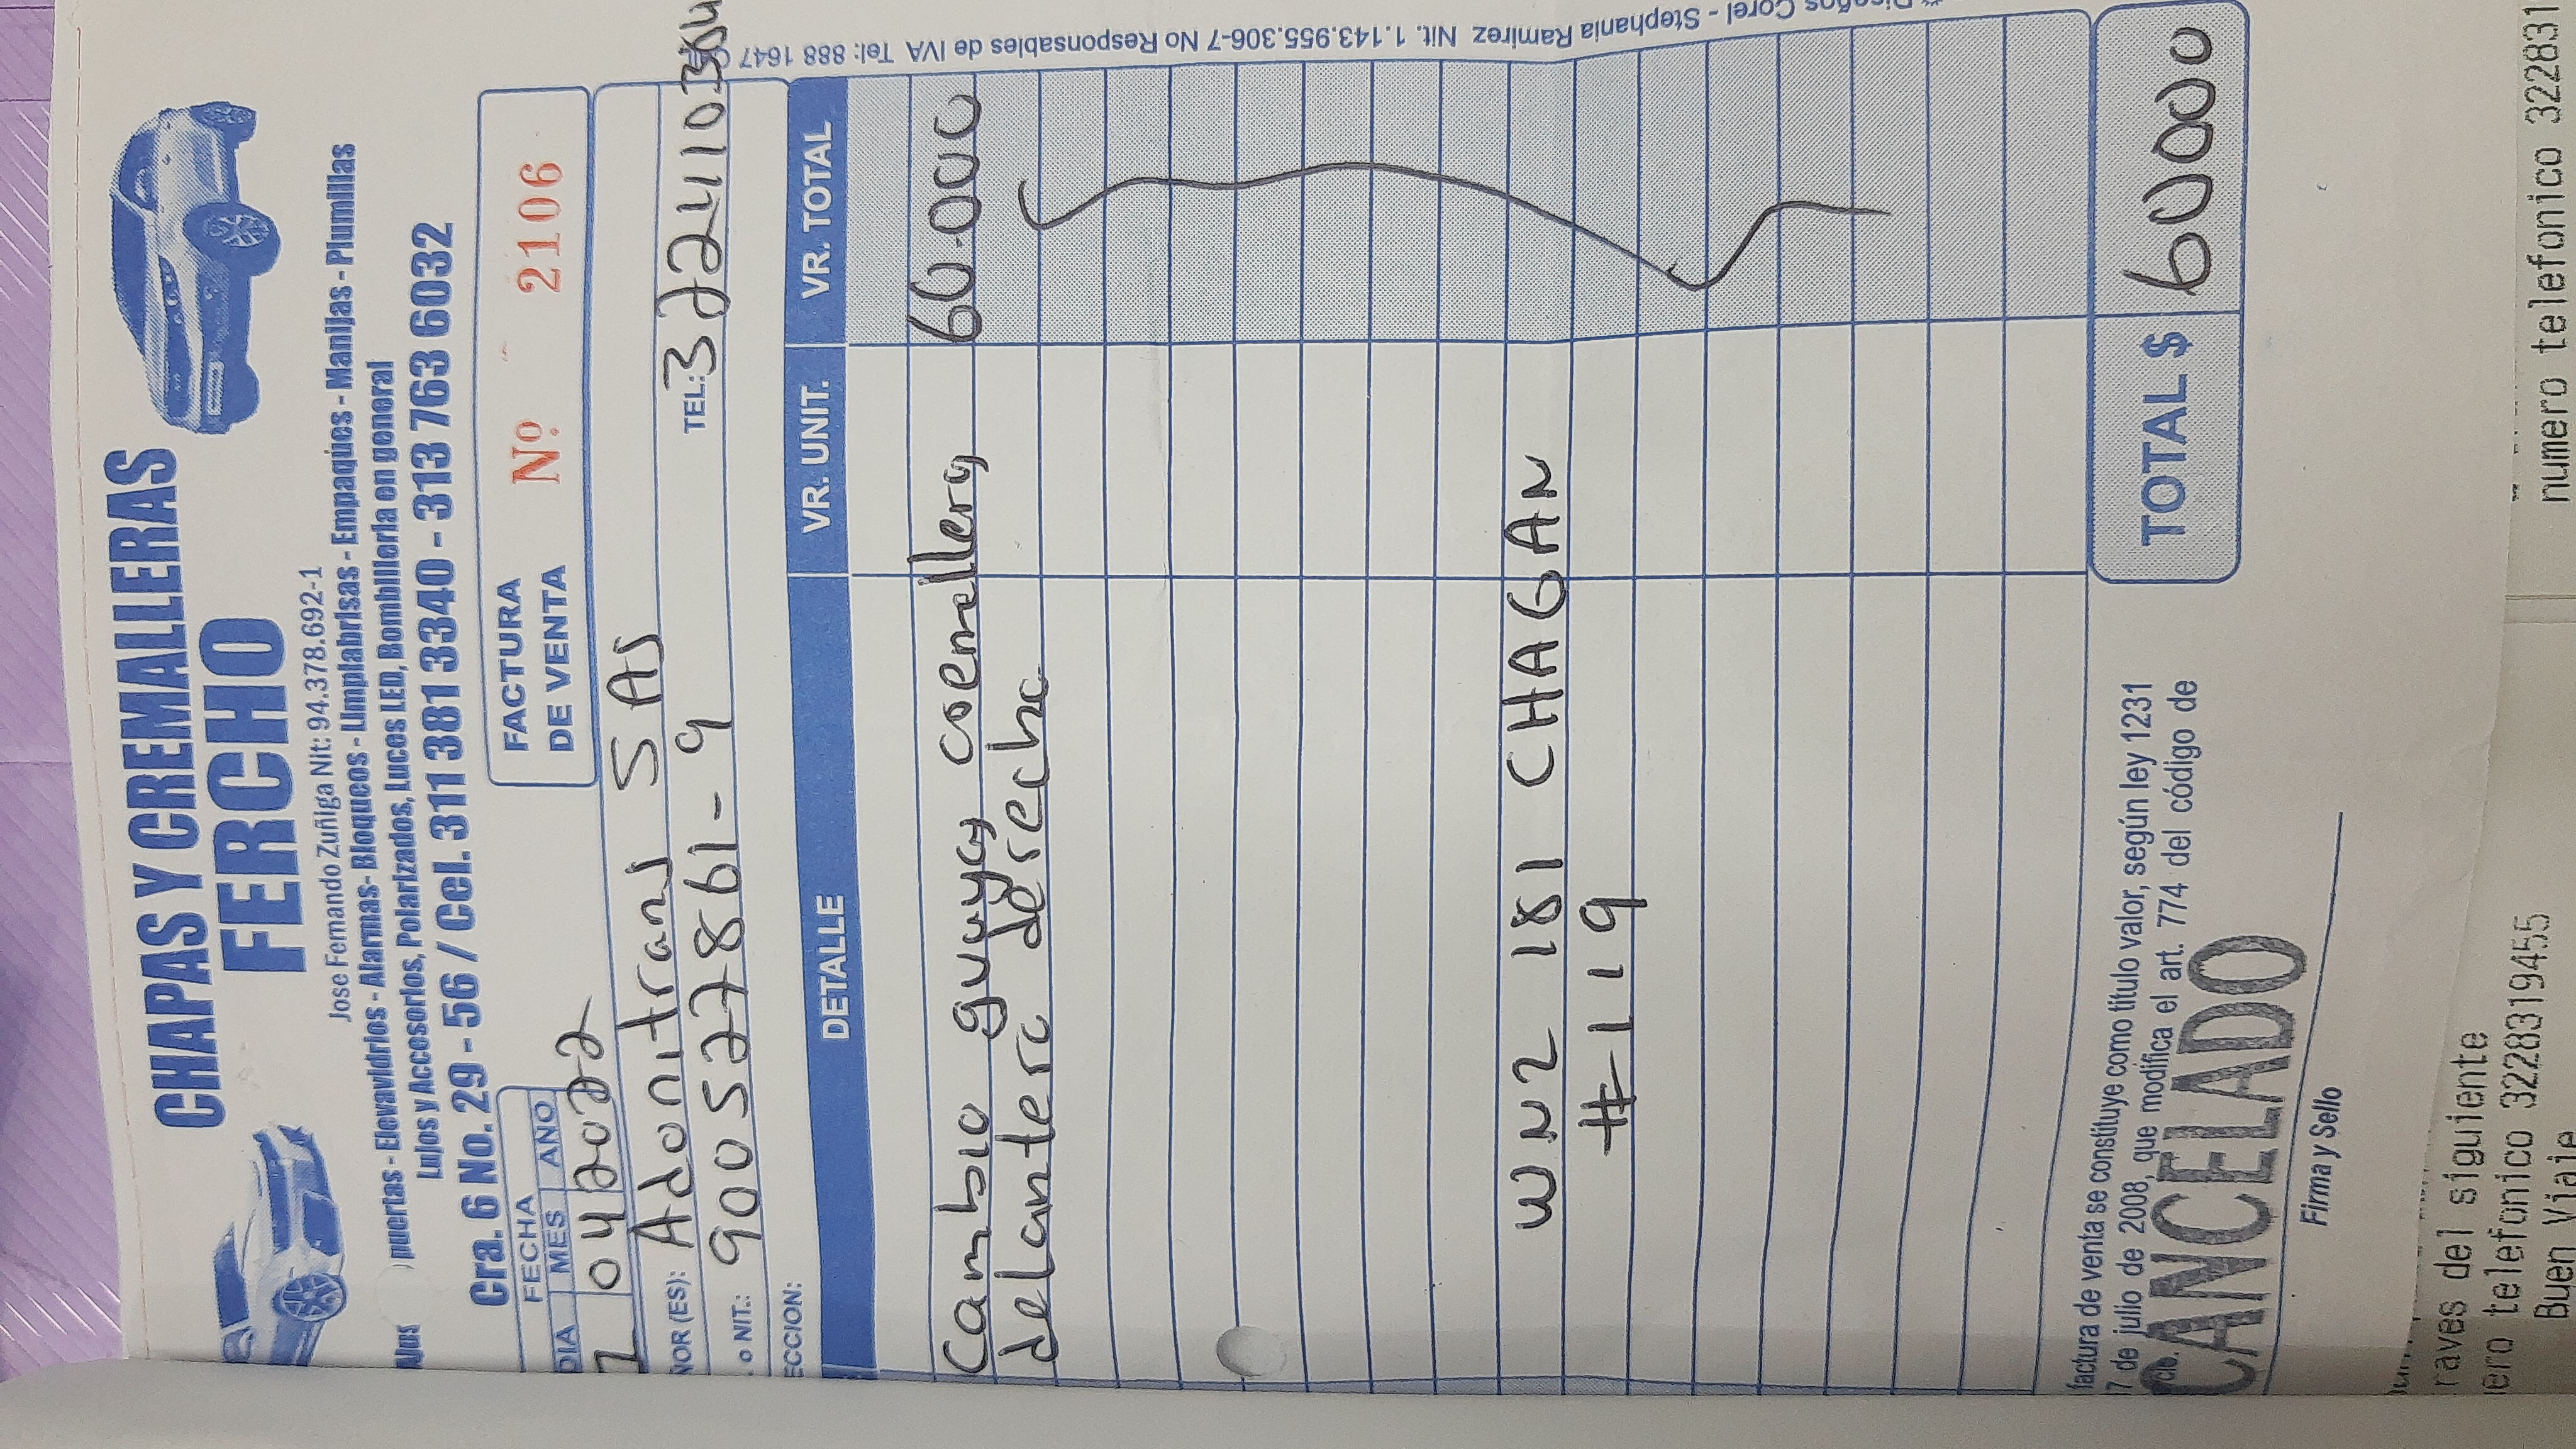 CHAPAS Y CREMALLERAS
FERCHO
Jose Fernando Zuñiga Nit: 94.378.692-1
puertas - Elevavidrios - Alarmas- Bloqueos - Limpiabrisas - Empaques - Manijas - Plumillas
Lujos y Accesorios, Polarizados, Luces LED, Bombilleria en general
Cra. 6 No. 29 - 56 / Cel. 311 381 3340 - 313 763 6032
FECHA
DIA MES AÑO
04 2022
FACTURA
DE VENTA
Nº 2106
ÑOR (ES): Adonitrans SAS
. o NIT.: 900 527861-9 TEL:
ECCION:
DETALLE VR. UNIT. VR. TOTAL
Cambio guaya cremallera 60.000
delantero derecho
WNZ 181 CHAGAN
#119
factura de venta se constituye como titulo valor, según ley 1231
17 de julio de 2008, que modifica el art. 774 del código de
TOTAL $ 60000
CANCELADO
Firma y Sello
Corel - Stephania Ramirez Nit. 1.143.955.306-7 No Responsables de IVA Tel: 888 1647
raves del siguiente
ero telefonico 3228319455
Buen Viaje
numero telefonico 322831